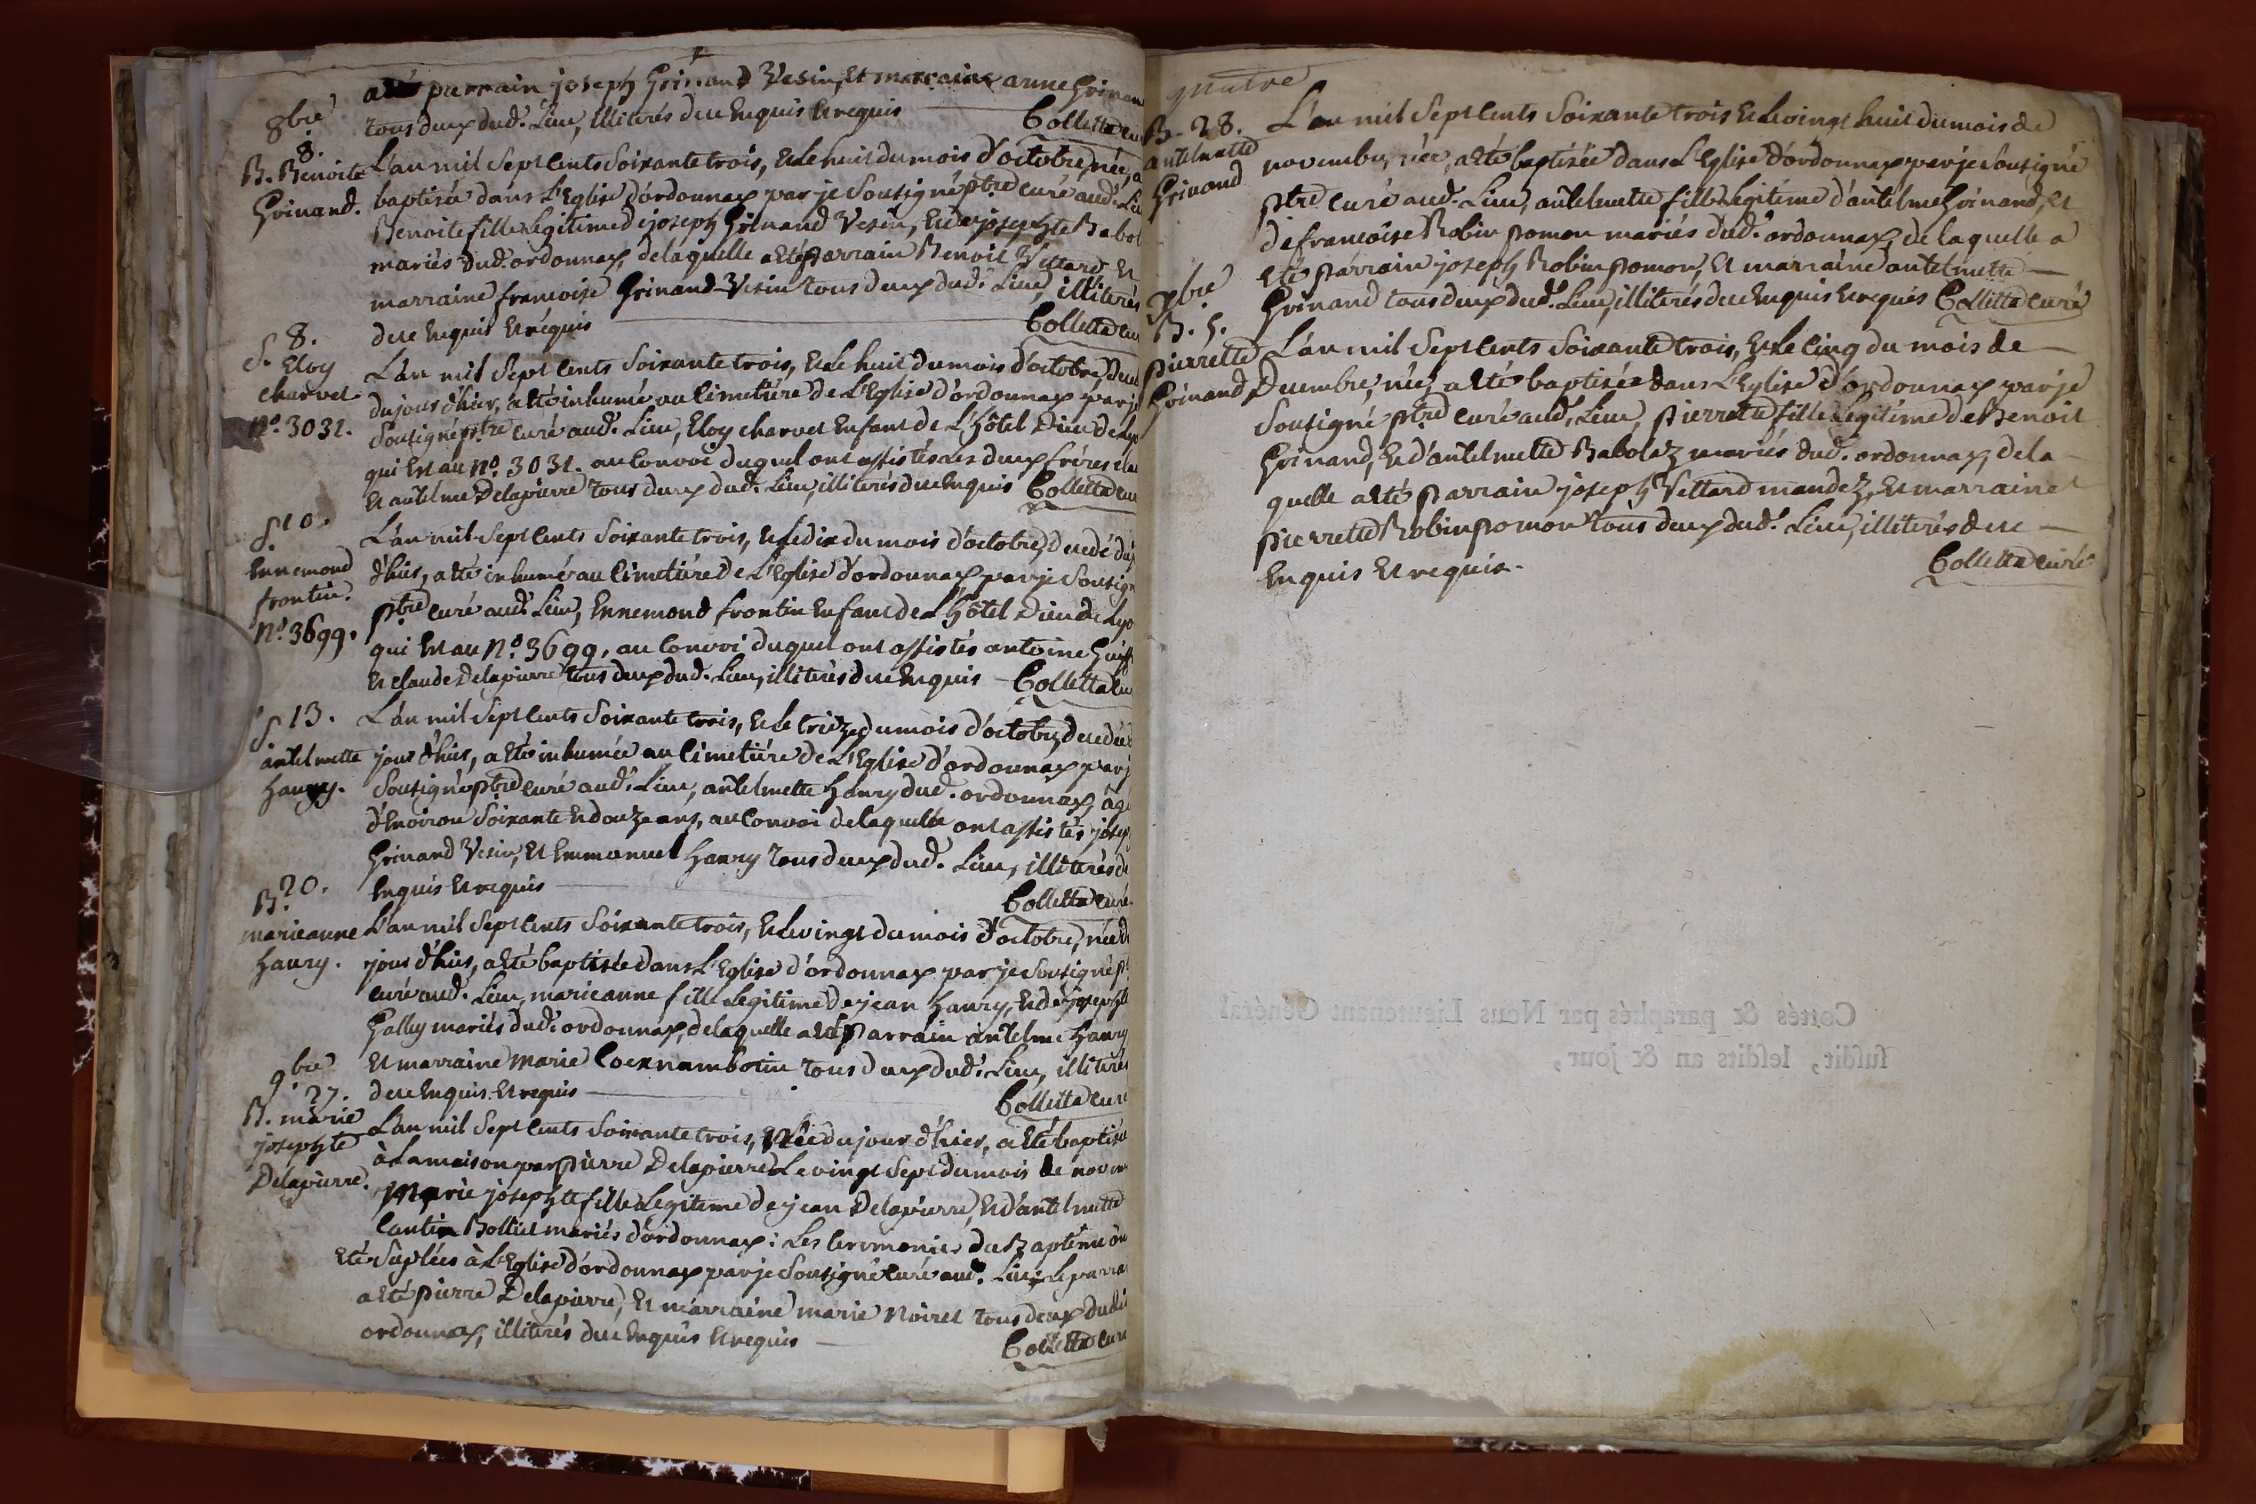 a eté parrain joseph Grinand Vesin, Et marraine anne Grinan
8bre
tous deux dud. Lieu, illiterés dece Enquis Et requis Colletta cu
8.
B. Benoite
Grinand.
L'an mil Sept Cents Soixante trois, Et Le huit du mois d'octobre, née, a
baptisée dans L'Eglise d'ordonnax par je Soutigné ptre curé aud. Lieu
Benoite fille Legitime de joseph Grinand Vesin, Et de josephte Babol
mariés dud. ordonnax, delaquelle a eté parrain Benoit Vettard, Et
marraine francoise Grinand-Vesin tous deux dud. Lieu, illiterés
dece Enquis Et requis Colletta cu
S. 8.
Eloy
charvet
N.o 3031.
L'an mil Sept Cents Soixante trois, Et Le huit du mois d'octobre, Deced
du jour d'hier, a eté inhumé au Cimetière de L'Eglise d'ordonnax par je
Soutigné ptre curé aud. Lieu, Eloy charvet Enfant de L'hôtel Dieu de Lyo
qui Est au N.o 3031. au Convoi duquel ont assistés Les deux frères
Et antelme Delapierre tous deux dud. Lieu, illiterés dece Enquis Colletta cur
S. 10.
Ennemond
frontin.
N.o 3699.
L'an mil Sept Cents Soixante trois, Et Le dix du mois d'octobre, decedé du j
d'hier, a eté inhumé au Cimetière de L'Eglise d'ordonnax par je Soutign
ptre curé aud. Lieu, Ennemond frontin Enfant de L'hôtel Dieu de Lyo
qui Est au N.o 3699. au Convoi duquel ont assistés antoine
Et claude Delapierre tous deux dud. Lieu, illiterés dece Enquis Colletta cu
S. 13.
antelmette
haury.
L'an mil Sept Cents Soixante trois, Et Le treize du mois d'octobre, decedée
jour d'hier, a eté inhumée au Cimetière de L'Eglise d'ordonnax par j
Soutigné ptre curé aud. Lieu, antelmette haury dud. ordonnax, âg
d'Environ Soixante Et douze ans, au Convoi de laquelle ont assistés josep
Grinand Vesin, Et Emmanuel haury tous deux dud. Lieu, illiterés d
Enquis Et requis Colletta curé
B. 20.
marieanne
haury.
L'an mil Sept Cents Soixante trois, Et Le vingt du mois d'octobre, née d
jour d'hier, a eté baptisée dans L'Eglise d'ordonnax par je Soutigné p
curé aud. Lieu, marieanne fille Legitime de jean haury, Et de josepht
Galley mariés dud. ordonnax, delaquelle a eté parrain antelme haury
Et marraine marie tous deux dud. Lieu, illiterés
dece Enquis Et requis Colletta curé
9bre
27.
B. marie
josephte
Delapierre.
L'an mil Sept Cents Soixante trois, Née du jour d'hier, a eté baptisée
à La maison par pierre Delapierre Le vingt Sept du mois de novem
Marie josephte fille Legitime de jean Delapierre, Et d'antelmette
Cantin Bolliet mariés d'ordonnax: Les Ceremonies du Baptême ôn
Eté Suplées à L'Eglise d'ordonnax par je Soutigné curé aud. Lieu: Le parra
a eté pierre Delapierre, Et marraine marie Noiret tous deux dudi
ordonnax, illiterés dece Enquis Et requis Colletta cure
quatre
B. 28.
antelmette
Grinand
L'an mil Sept Cents Soixante trois Et Le vingt huit du mois de
novembre, née, a eté baptisée dans L'Eglise d'ordonnax par je Soutigné
ptre curé aud. Lieu, antelmette fille Legitime d'antelme Grinand, Et
de francoise Robin pomon mariés dud. ordonnax, delaquelle a
eté parrain joseph Robin pomon, Et marraine antelmette
Grinand tous deux dud. Lieu, illiterés dece Enquis Et requis Colletta curé
xbre
B. 5.
pierrette
Grinand
L'an mil Sept Cents Soixante trois, Et Le cinq du mois de
Decembre, née, a eté baptisée dans L'Eglise d'ordonnax par je
Soutigné ptre curé aud. Lieu, pierrette fille Legitime de Benoit
Grinand, Et d'antelmette Babolaz mariés dud. ordonnax, dela-
quelle a eté parrain joseph Vettard mandez, Et marraine
pierrette Robin pomon tous deux dud. Lieu, illiterés dece
Enquis Et requis. Colletta curé
Cottés & paraphés par Nous Lieutenant Général
susdit, lesdits an & jour,